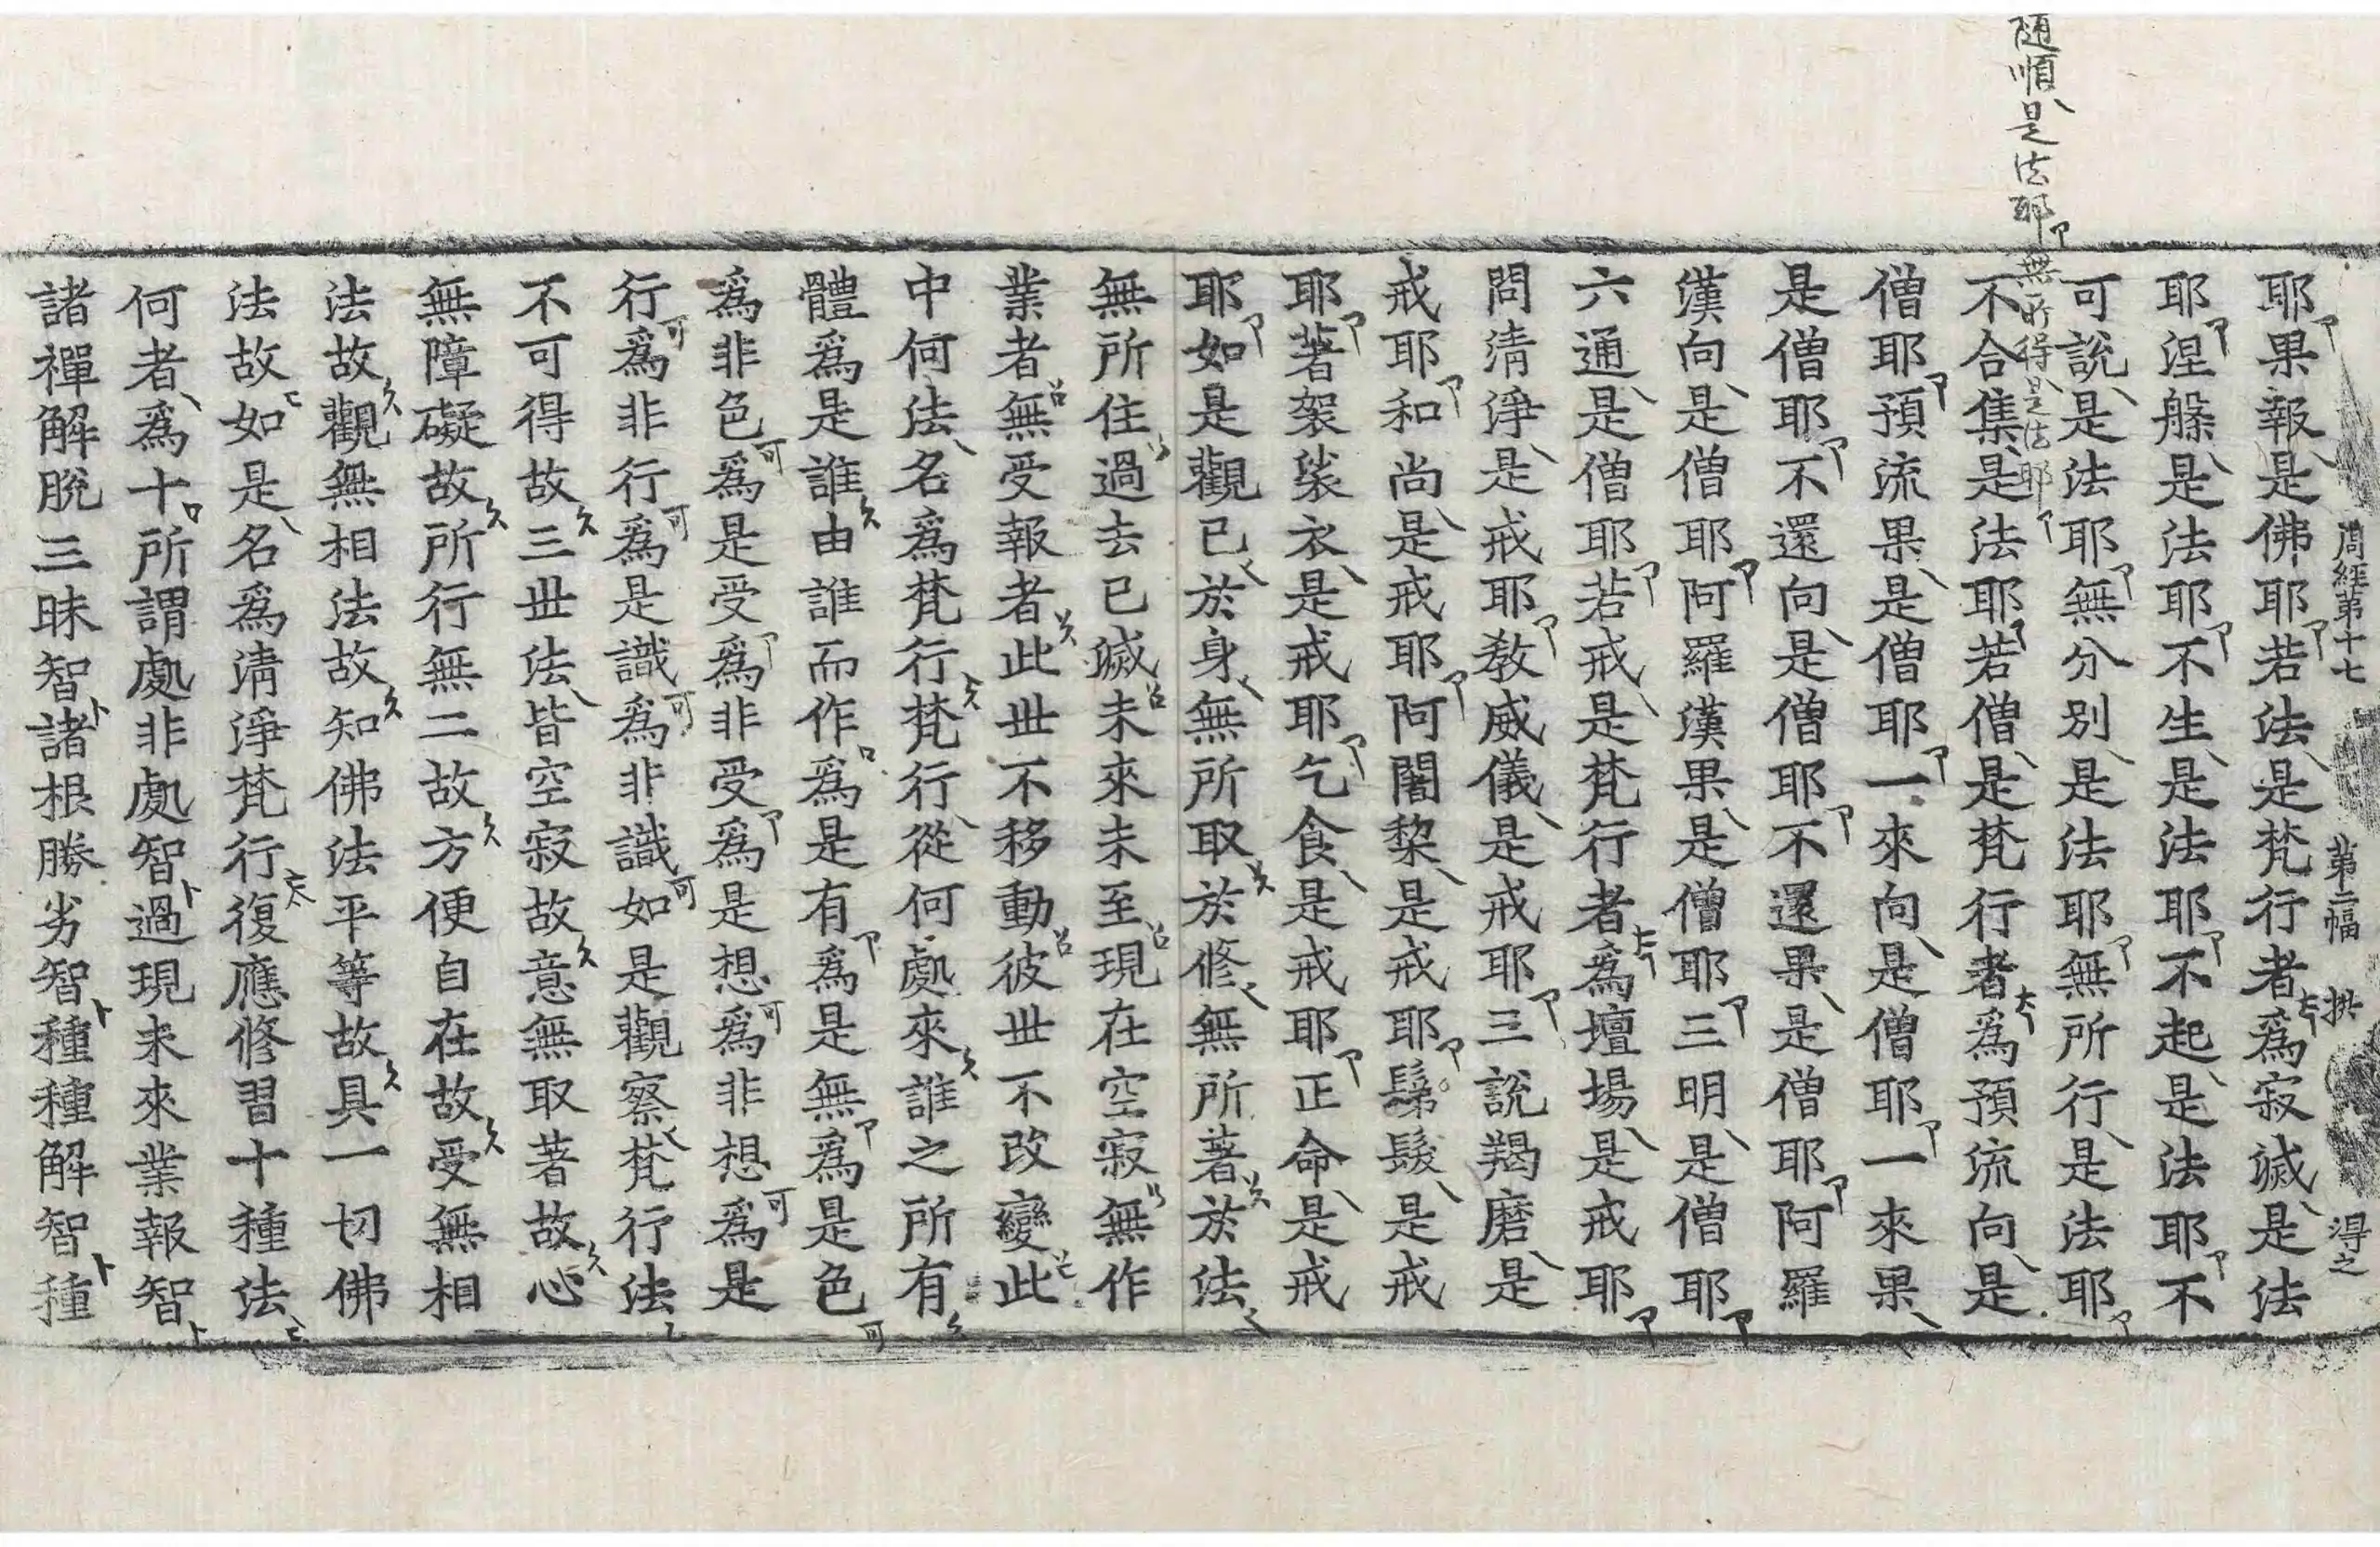 周經第十七　第二幅　拱　淂之
随順是法耶無所得是法耶
耶果報是佛耶若法是梵行者爲寂滅是法
耶涅槃是法耶不生是法耶不起是法耶不
可說是法耶無分別是法耶無所行是法耶
不合集是法耶若僧是梵行者爲預流向是
僧耶預流果是僧耶一來向是僧耶一來果
是僧耶不還向是僧耶不還果是僧耶阿羅
漢向是僧耶阿羅漢果是僧耶三明是僧耶
六通是僧耶若戒是梵行者爲壇場是戒耶
問清淨是戒耶敎威儀是戒耶三說羯磨是
戒耶和尚是戒耶阿闍棃是戒耶鬀髮是戒
耶著袈裟衣是戒耶乞食是戒耶正命是戒
耶如是觀已於身無所取於修無所著於法
無所住過去已滅未來未至現在空寂無作
業者無受報者此世不移動彼世不改變此
中何法名爲梵行梵行從何處來誰之所有
體爲是誰由誰而作爲是有爲是無爲是色
爲非色爲是受爲非受爲是想爲非想爲是
行爲非行爲是識爲非識如是觀察梵行法
不可得故三世法皆空寂故意無取著故心
無障礙故所行無二故方便自在故受無相
法故觀無相法故知佛法平等故具一切佛
法故如是名爲清淨梵行復應修習十種法
何者爲十所謂處非處智過現未來業報智
諸禪解脫三昧智諸根勝劣智種種解智種